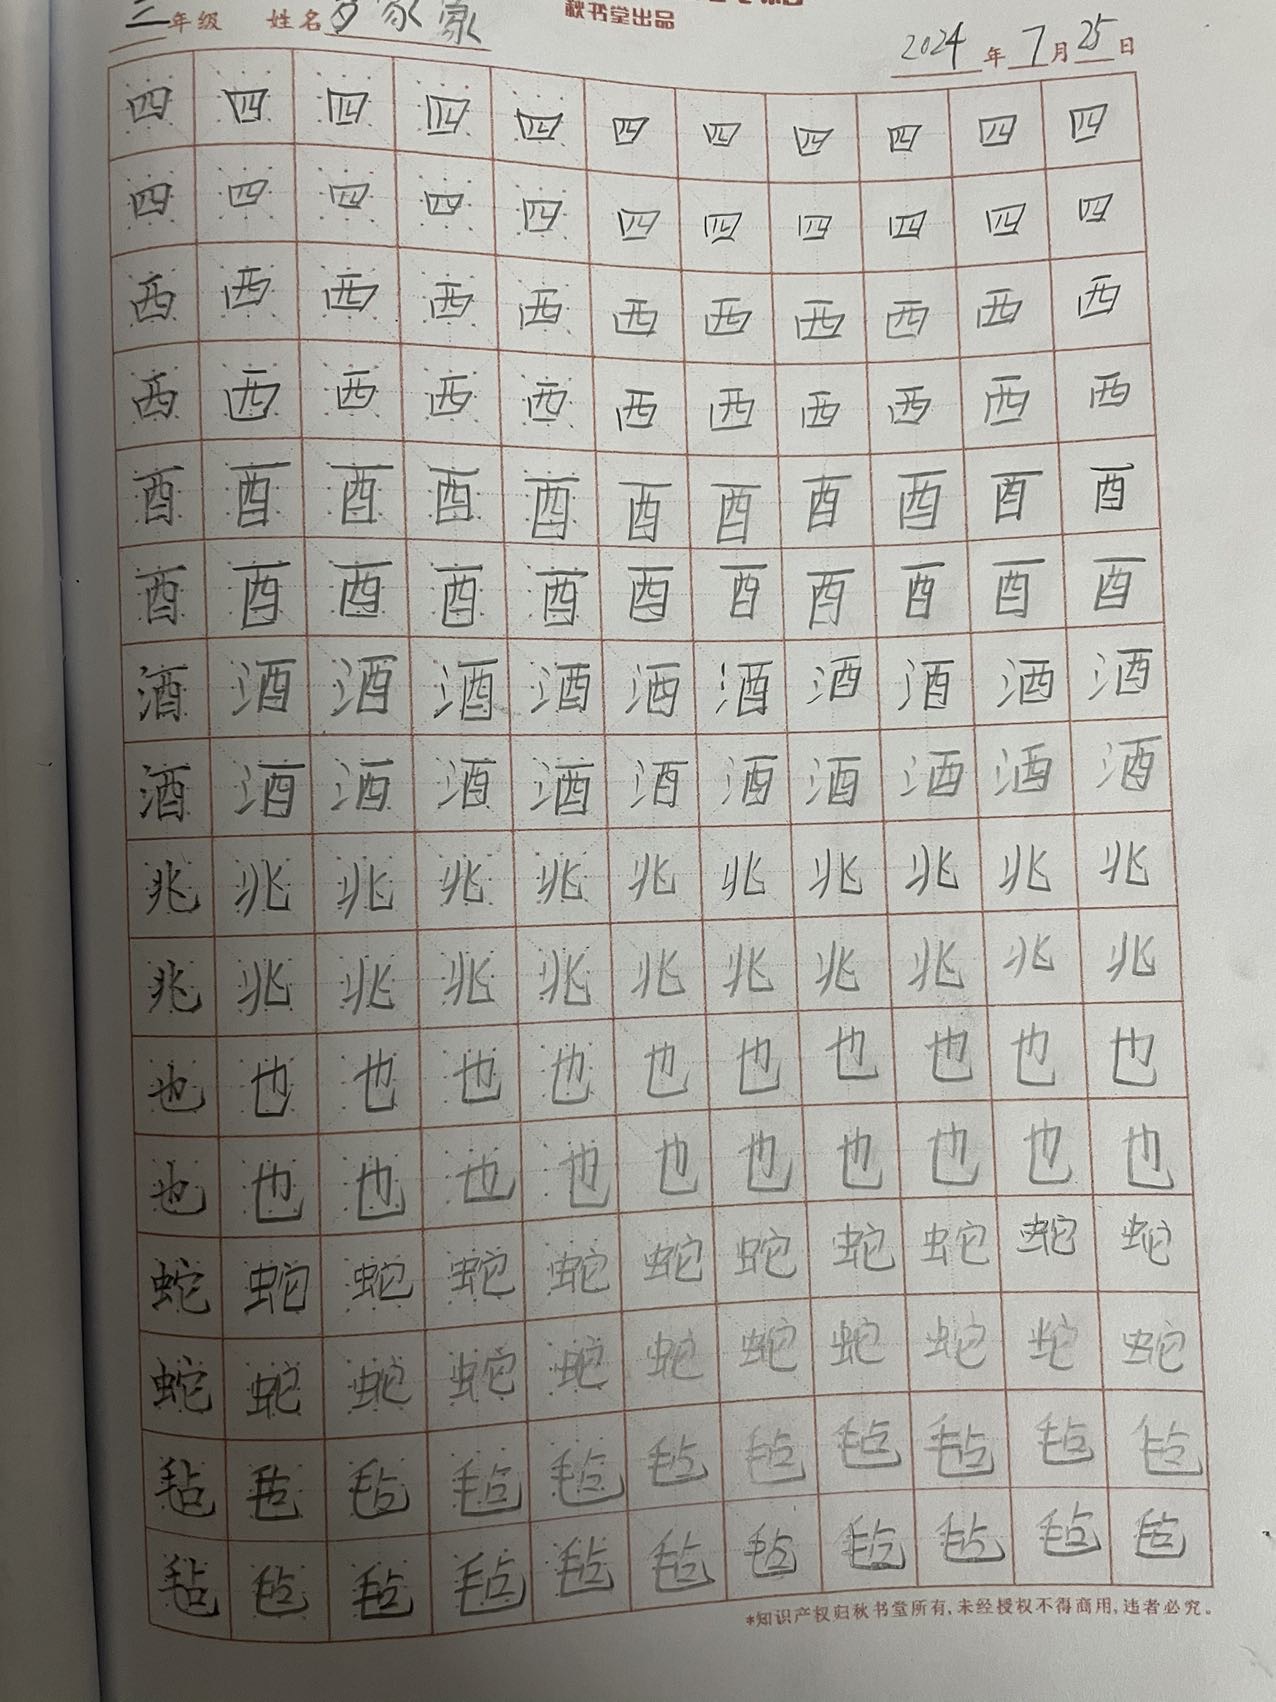 三年级 姓名罗家豪 秋书堂出品
2024年7月25日
四四四四四四四四四四四
四四四四四四四四四四四
西西西西西西西西西西西
西西西西西西西西西西西
酉酉酉酉酉酉酉酉酉酉酉
酉酉酉酉酉酉酉酉酉酉酉
酒酒酒酒酒酒酒酒酒酒酒
酒酒酒酒酒酒酒酒酒酒酒
兆兆兆兆兆兆兆兆兆兆兆
兆兆兆兆兆兆兆兆兆兆兆
也也也也也也也也也也也
也也也也也也也也也也也
蛇蛇蛇蛇蛇蛇蛇蛇蛇蛇蛇
蛇蛇蛇蛇蛇蛇蛇蛇蛇蛇蛇
毡毡毡毡毡毡毡毡毡毡毡
毡毡毡毡毡毡毡毡毡毡毡
*知识产权归秋书堂所有,未经授权不得商用,违者必究。